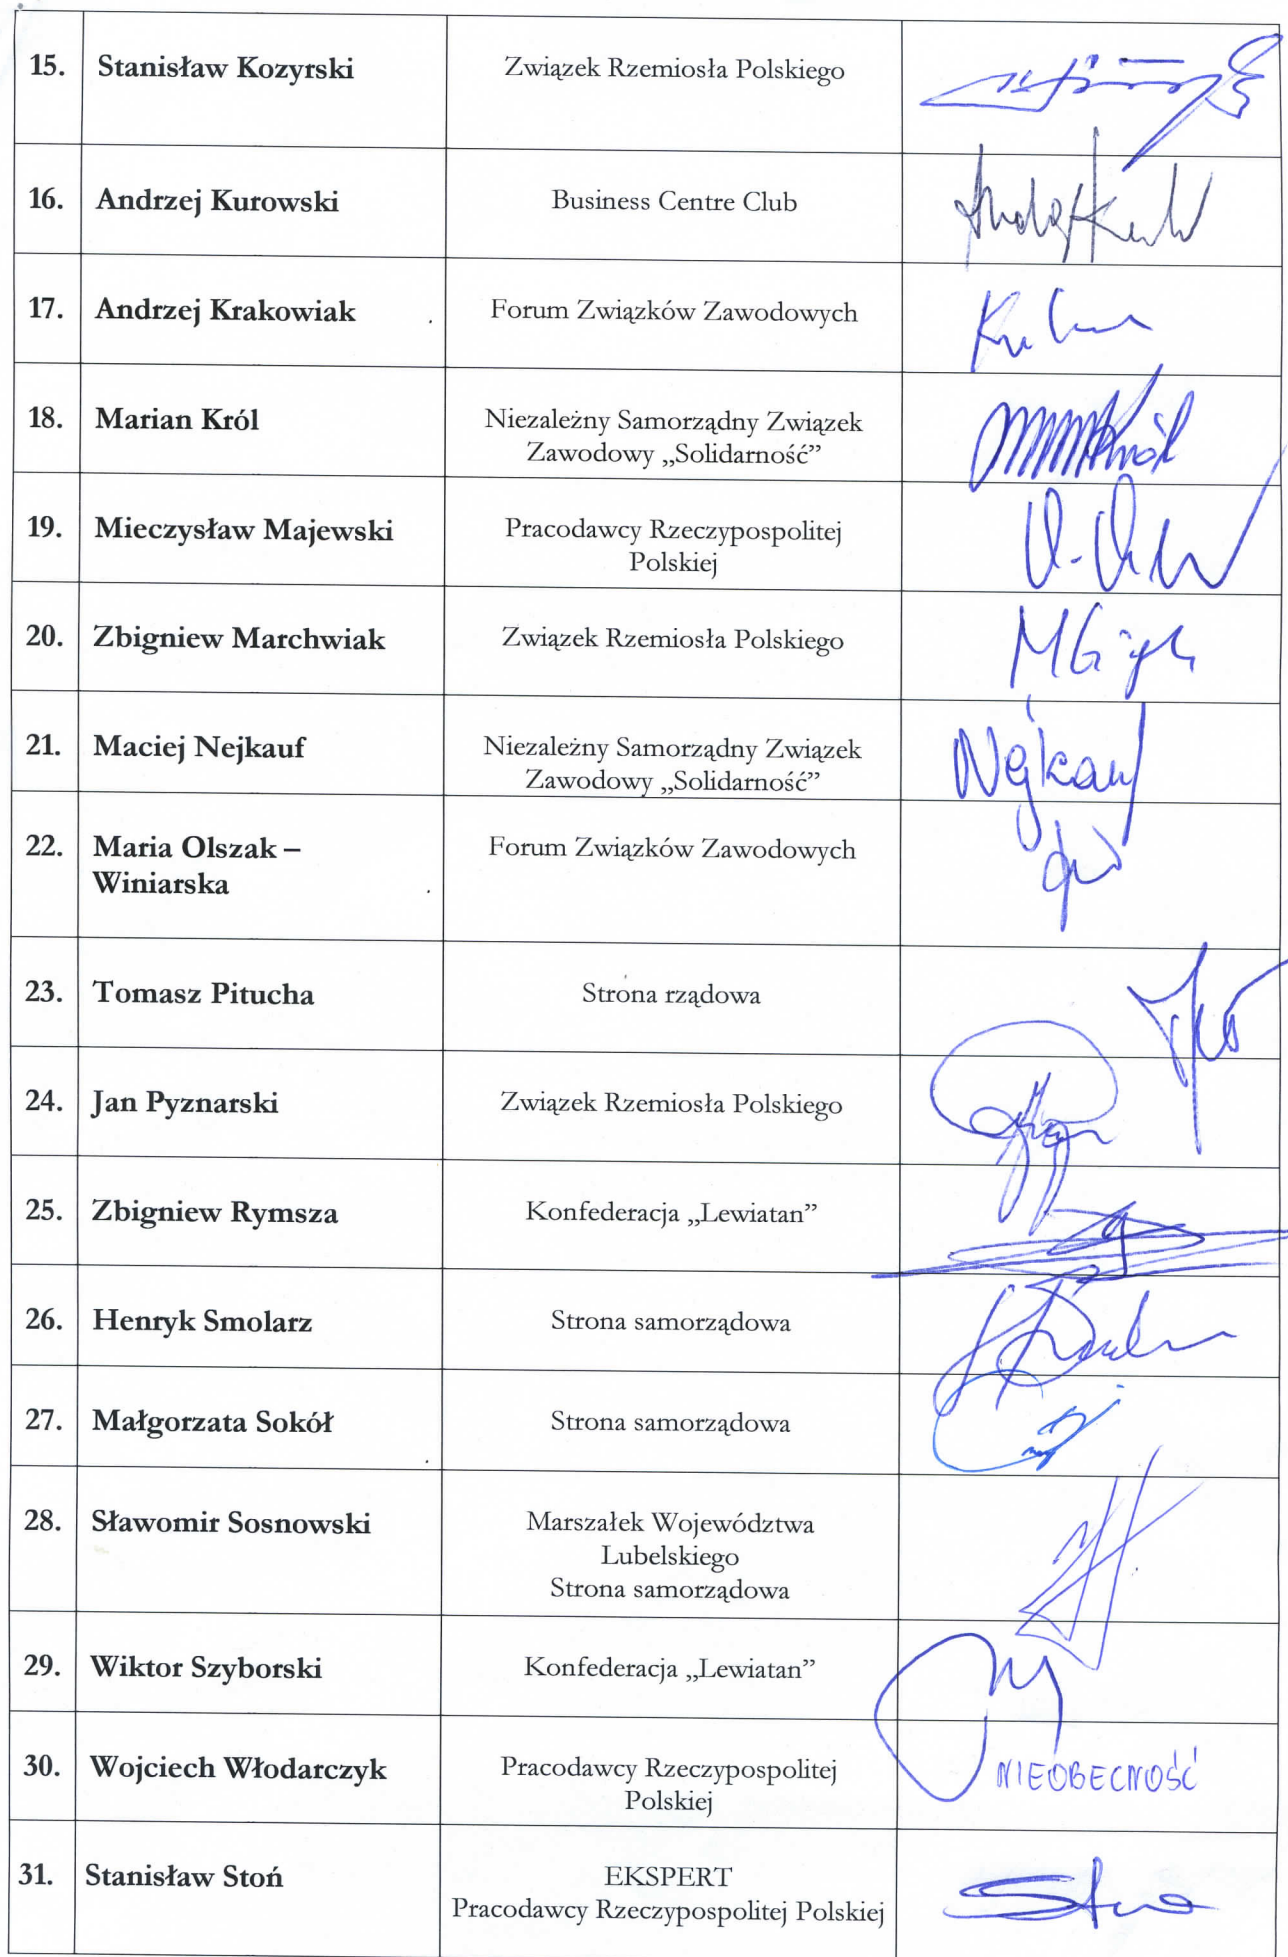 15. Stanisław Kozyrski Związek Rzemiosła Polskiego
16. Andrzej Kurowski Business Centre Club
17. Andrzej Krakowiak Forum Związków Zawodowych
18. Marian Król Niezależny Samorządny Związek
Zawodowy „Solidarność”
Król
19. Mieczysław Majewski Pracodawcy Rzeczypospolitej
Polskiej
20. Zbigniew Marchwiak Związek Rzemiosła Polskiego
21. Maciej Nejkauf Niezależny Samorządny Związek
Zawodowy „Solidarność”
Nejkauf
22. Maria Olszak – Forum Związków Zawodowych
Winiarska
23. Tomasz Pitucha Strona rządowa
24. Jan Pyznarski Związek Rzemiosła Polskiego
25. Zbigniew Rymsza Konfederacja „Lewiatan”
26. Henryk Smolarz Strona samorządowa
27. Małgorzata Sokół Strona samorządowa
28. Sławomir Sosnowski Marszałek Województwa
Lubelskiego
Strona samorządowa
29. Wiktor Szyborski Konfederacja „Lewiatan”
30. Wojciech Włodarczyk Pracodawcy Rzeczypospolitej NIEOBECNOŚĆ
Polskiej
31. Stanisław Stoń EKSPERT
Pracodawcy Rzeczypospolitej Polskiej